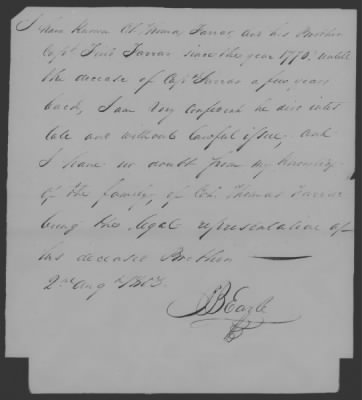 I have known Col. Thomas Farrar and his Brother
Capt. Farrar, since the year 1776, untill
the decease of Capt. Farrar a few years
back, I am very confident he dies intes
tate and without Lawful issue, and
I have no doubt from my knowledge
of the family, of Col. Thomas Farrar
being the legal representative of
his deceased Brother
2nd Aug
JB Earle